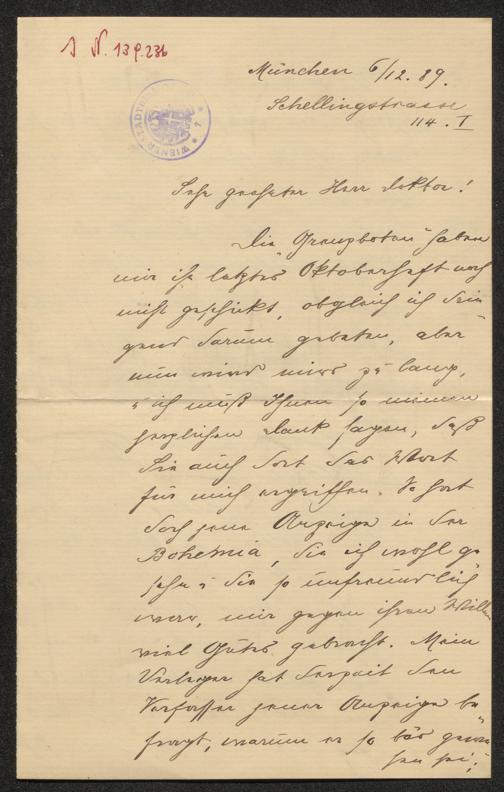 J. N. 139.236
WIENER STADT
München 6/12. 89.
Schellingstrasse
114. I
Sehr geehrter Herr Doktor!
Die "Grenzboten" haben
mir ihr letztes Oktoberheft noch
nicht geschickt, obgleich ich drin
gend darum gebeten, aber
nun wird mir's zu lang,
u ich muß Ihnen so meinen
herzlichen Dank sagen, daß
Sie auch dort das Wort
für mich ergriffen. So hat
doch jene Anzeige in der
Bohemia, die ich wohl ge
sehn u die so unfreundlich
war, mir gegen ihren Willen
viel Gutes gebracht. Mein
Verleger hat derzeit den
Verfasser jener Anzeige be
fragt, warum er so bös gewe
sen sei;